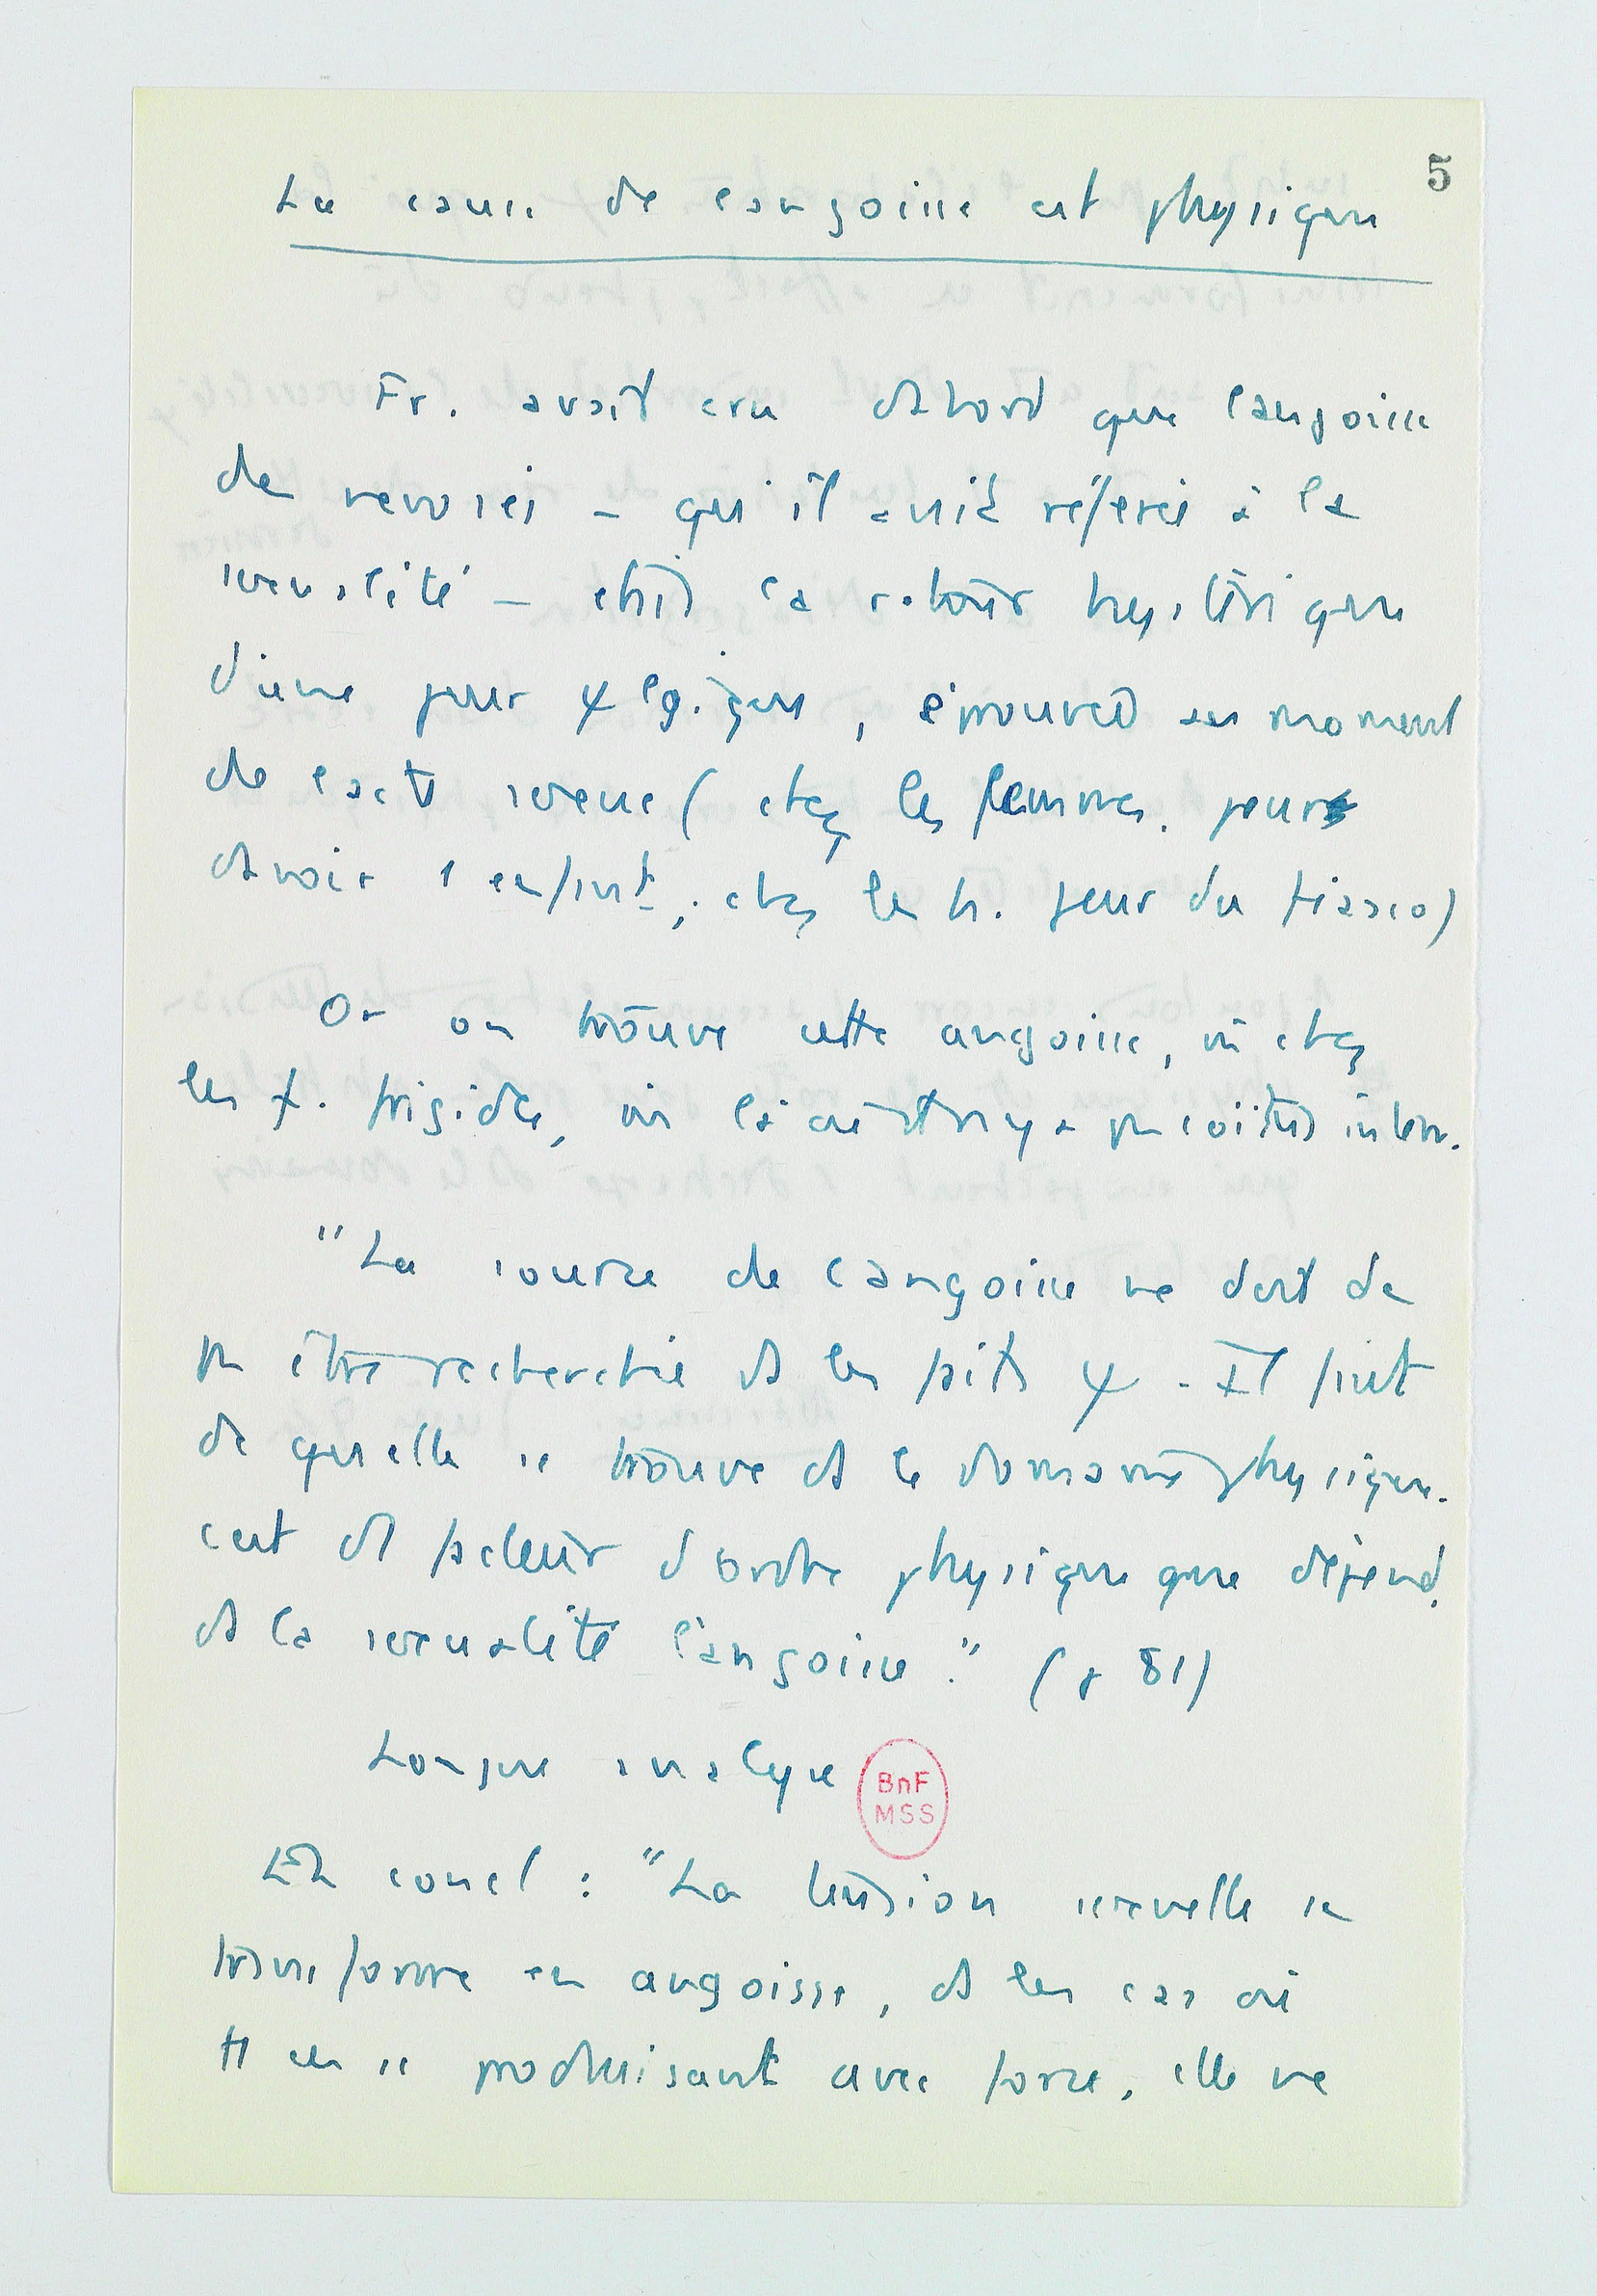 5
La cause de l'angoisse est physique
Fr. avait cru d'abord que l'angoisse
des nevroses – qu'il avait référée à la
sexualité – était la retour hystérique
d'une peur ψlogique, éprouvée au moment
de l'acte sexuel (chez les femmes. peur
d'avoir 1 enfant; chez les h. peur du fiasco)
Or on trouve cette angoisse, m̂ chez
les f. frigides, m̂ là où il n'y a pas coïtus interr.
"La source de l'angoisse ne doit dc
pas être recherchée ds les faits ψ. Il faut
dc qu'elle se trouve ds le domaine physique.
c'est d'1 facteur d'ordre physique que dépend,
ds la sexualité l'angoisse." (p 81)
Longue analyse
BnF
MSS
Et concl : "La tension sexuelle se
transforme en angoisse, ds les cas où
tt en se produisant avec force, elle ne